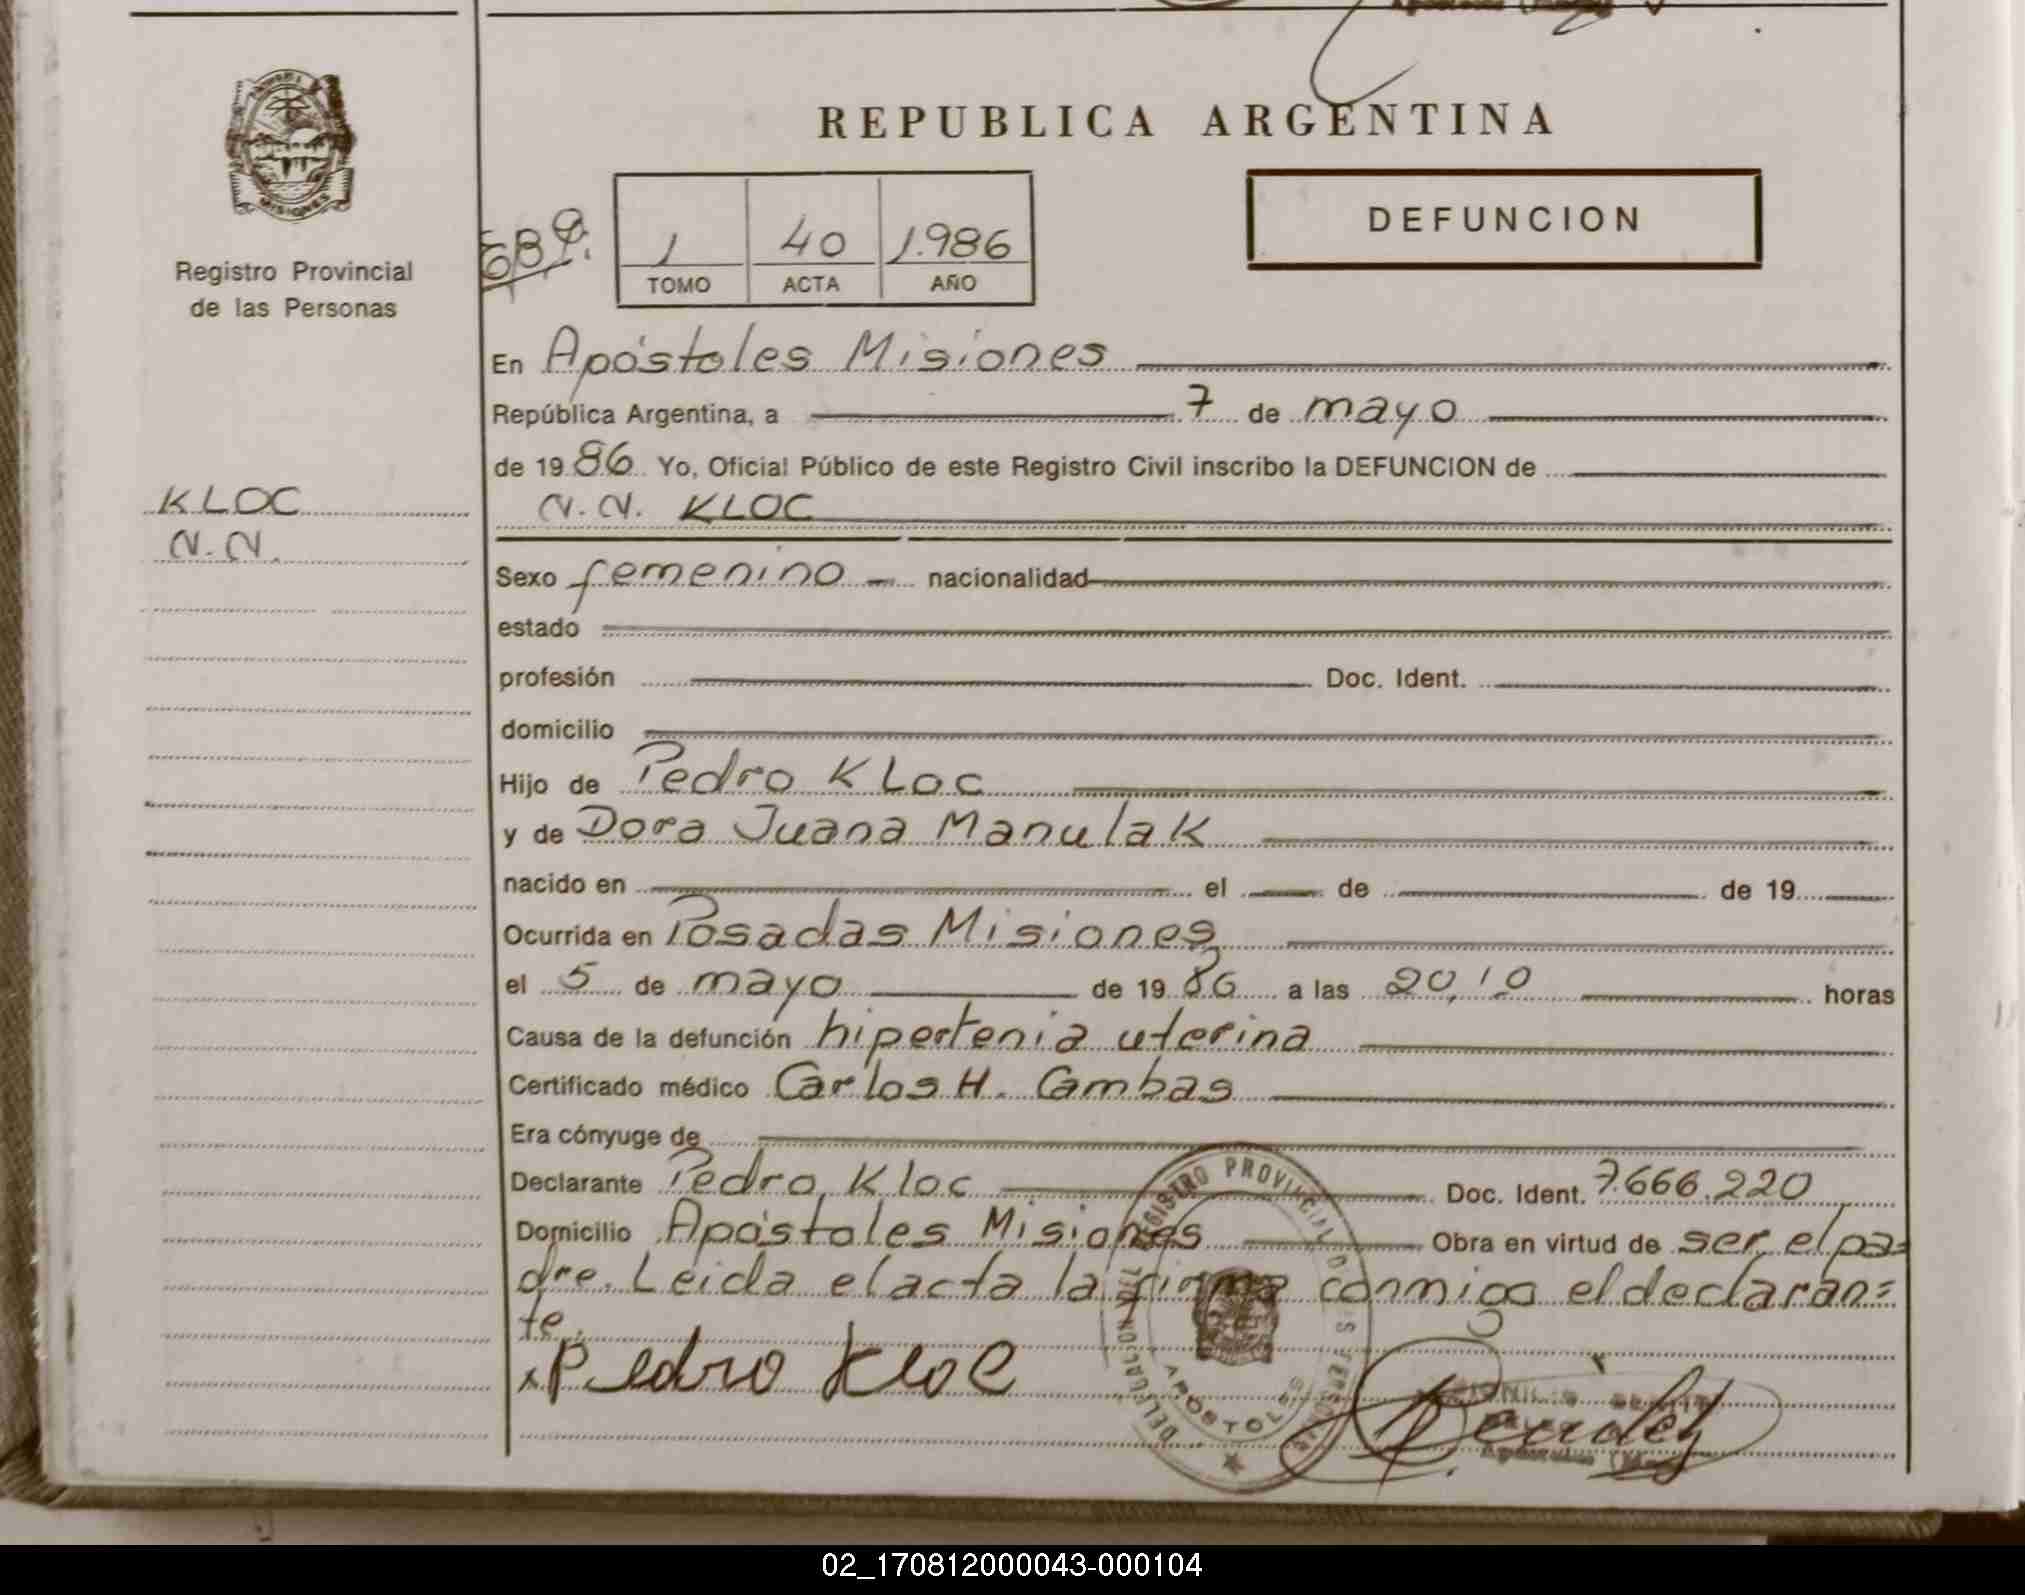 REPUBLICA ARGENTINA
DEFUNCION
MISIONES
Registro Provincial
de las Personas
689.
1 40 1.986
TOMO ACTA AÑO
KLOC
N.N.
En Apóstoles Misiones
República Argentina, a 7 de mayo
de 19 86 Yo, Oficial Público de este Registro Civil inscribo la DEFUNCION de
N.N. KLOC
Sexo femenino nacionalidad
estado
profesión Doc. Ident.
domicilio
Hijo de Pedro Kloc
y de Dora Juana Manulak
nacido en el de de 19
Ocurrida en Posadas Misiones
el 5 de mayo de 19 86 a las 20,10 horas
Causa de la defunción hipertenia uterina
Certificado médico Carlos H. Cambas
Era cónyuge de
Declarante Pedro Kloc Doc. Ident. 7.666.220
Domicilio Apóstoles Misiones Obra en virtud de ser el pa=
dre. Leida el acta la firma conmigo el declaran=
te.
x Pedro Kloc
REGISTRO PROVINCIAL DE LAS PERSONAS
DELEGACION
APOSTOLES
02_170812000043-000104